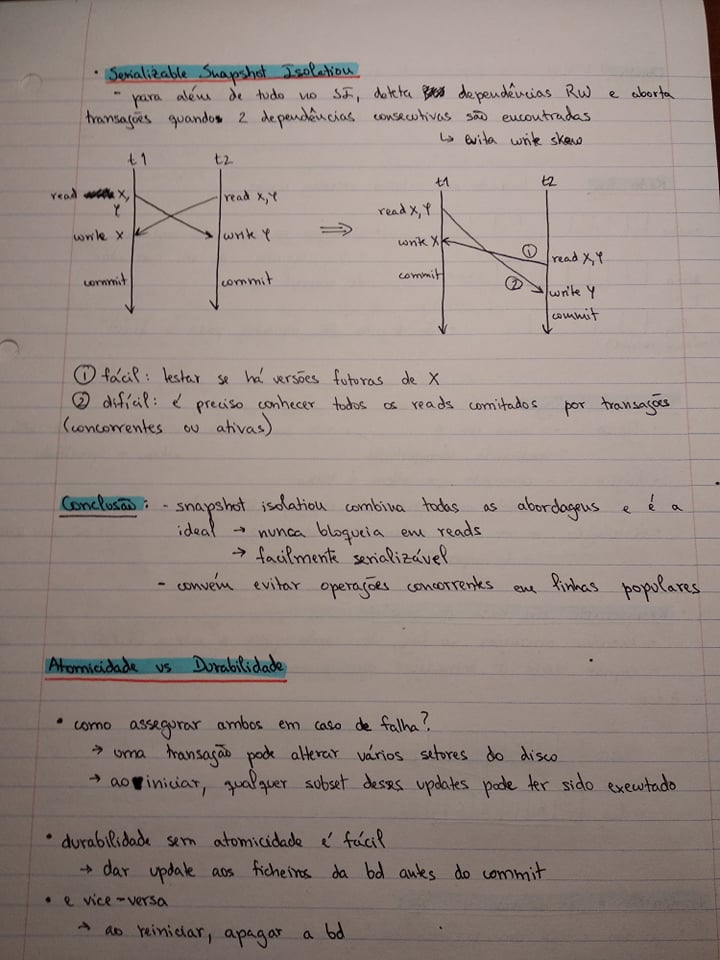 • Serializable Snapshot Isolation
- para além de tudo no SI, deteta dependências RW e aborta
transações quandos 2 dependências consecutivas são encontradas
↳ evita write skew
t1 t2
read X, Y
write X
commit
read X,Y
write Y
commit
⇒
t1 t2
read X,Y
write X
commit
①
②
read X,Y
write Y
commit
① fácil: testar se há versões futuras de X
② difícil: é preciso conhecer todos os reads comitados por transações
(concorrentes ou ativas)
Conclusão: - snapshot isolation combina todas as abordagens e é a
ideal → nunca bloqueia em reads
→ facilmente serializável
- convém evitar operações concorrentes em linhas populares
Atomicidade vs Durabilidade
• como assegurar ambos em caso de falha?
→ uma transação pode alterar vários setores do disco
→ ao iniciar, qualquer subset desses updates pode ter sido executado
• durabilidade sem atomicidade é fácil
→ dar update aos ficheiros da bd antes do commit
• e vice-versa
→ ao reiniciar, apagar a bd